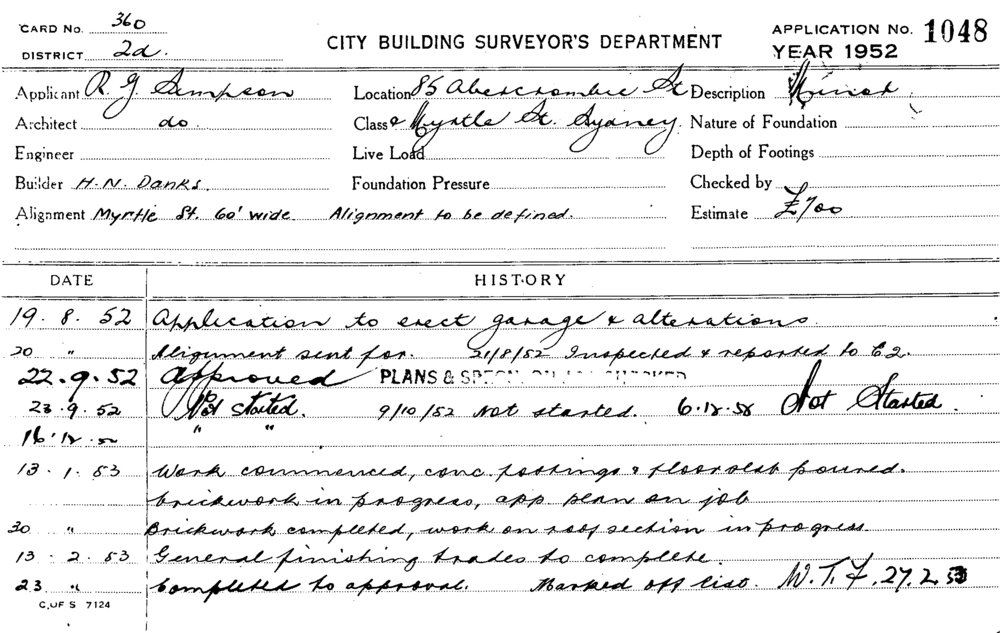 CARD No. 360
DISTRICT 2d.
CITY BUILDING SURVEYOR'S DEPARTMENT
APPLICATION No. 1048
YEAR 1952
Applicant R. G. Simpson Location 85 Abercrombie St Description Minor
Architect do Class & Myrtle St. Sydney. Nature of Foundation
Engineer Live Load Depth of Footings
Builder H. N. Danks. Foundation Pressure Checked by
Alignment Myrtle St. 60' wide. Alignment to be defined. Estimate £700
DATE HISTORY
19. 8. 52 Application to erect garage & alterations.
20 " Alignment sent for. 21/8/52 Inspected & reported to C2.
22. 9. 52 Approved PLANS &
23. 9. 52 Not started. 9/10/52 Not started. 6.12.52 Not Started.
16.12.52 " "
13. 1. 53 Work commenced, conc. footings & floor slab poured.
brickwork in progress, app. plan on job
30 " Brickwork completed, work on roof section in progress
13. 2. 53 General finishing trades to complete.
23 " Completed to approval. Marked off list. W.T.F. 27.2.53
C. OF S 7124